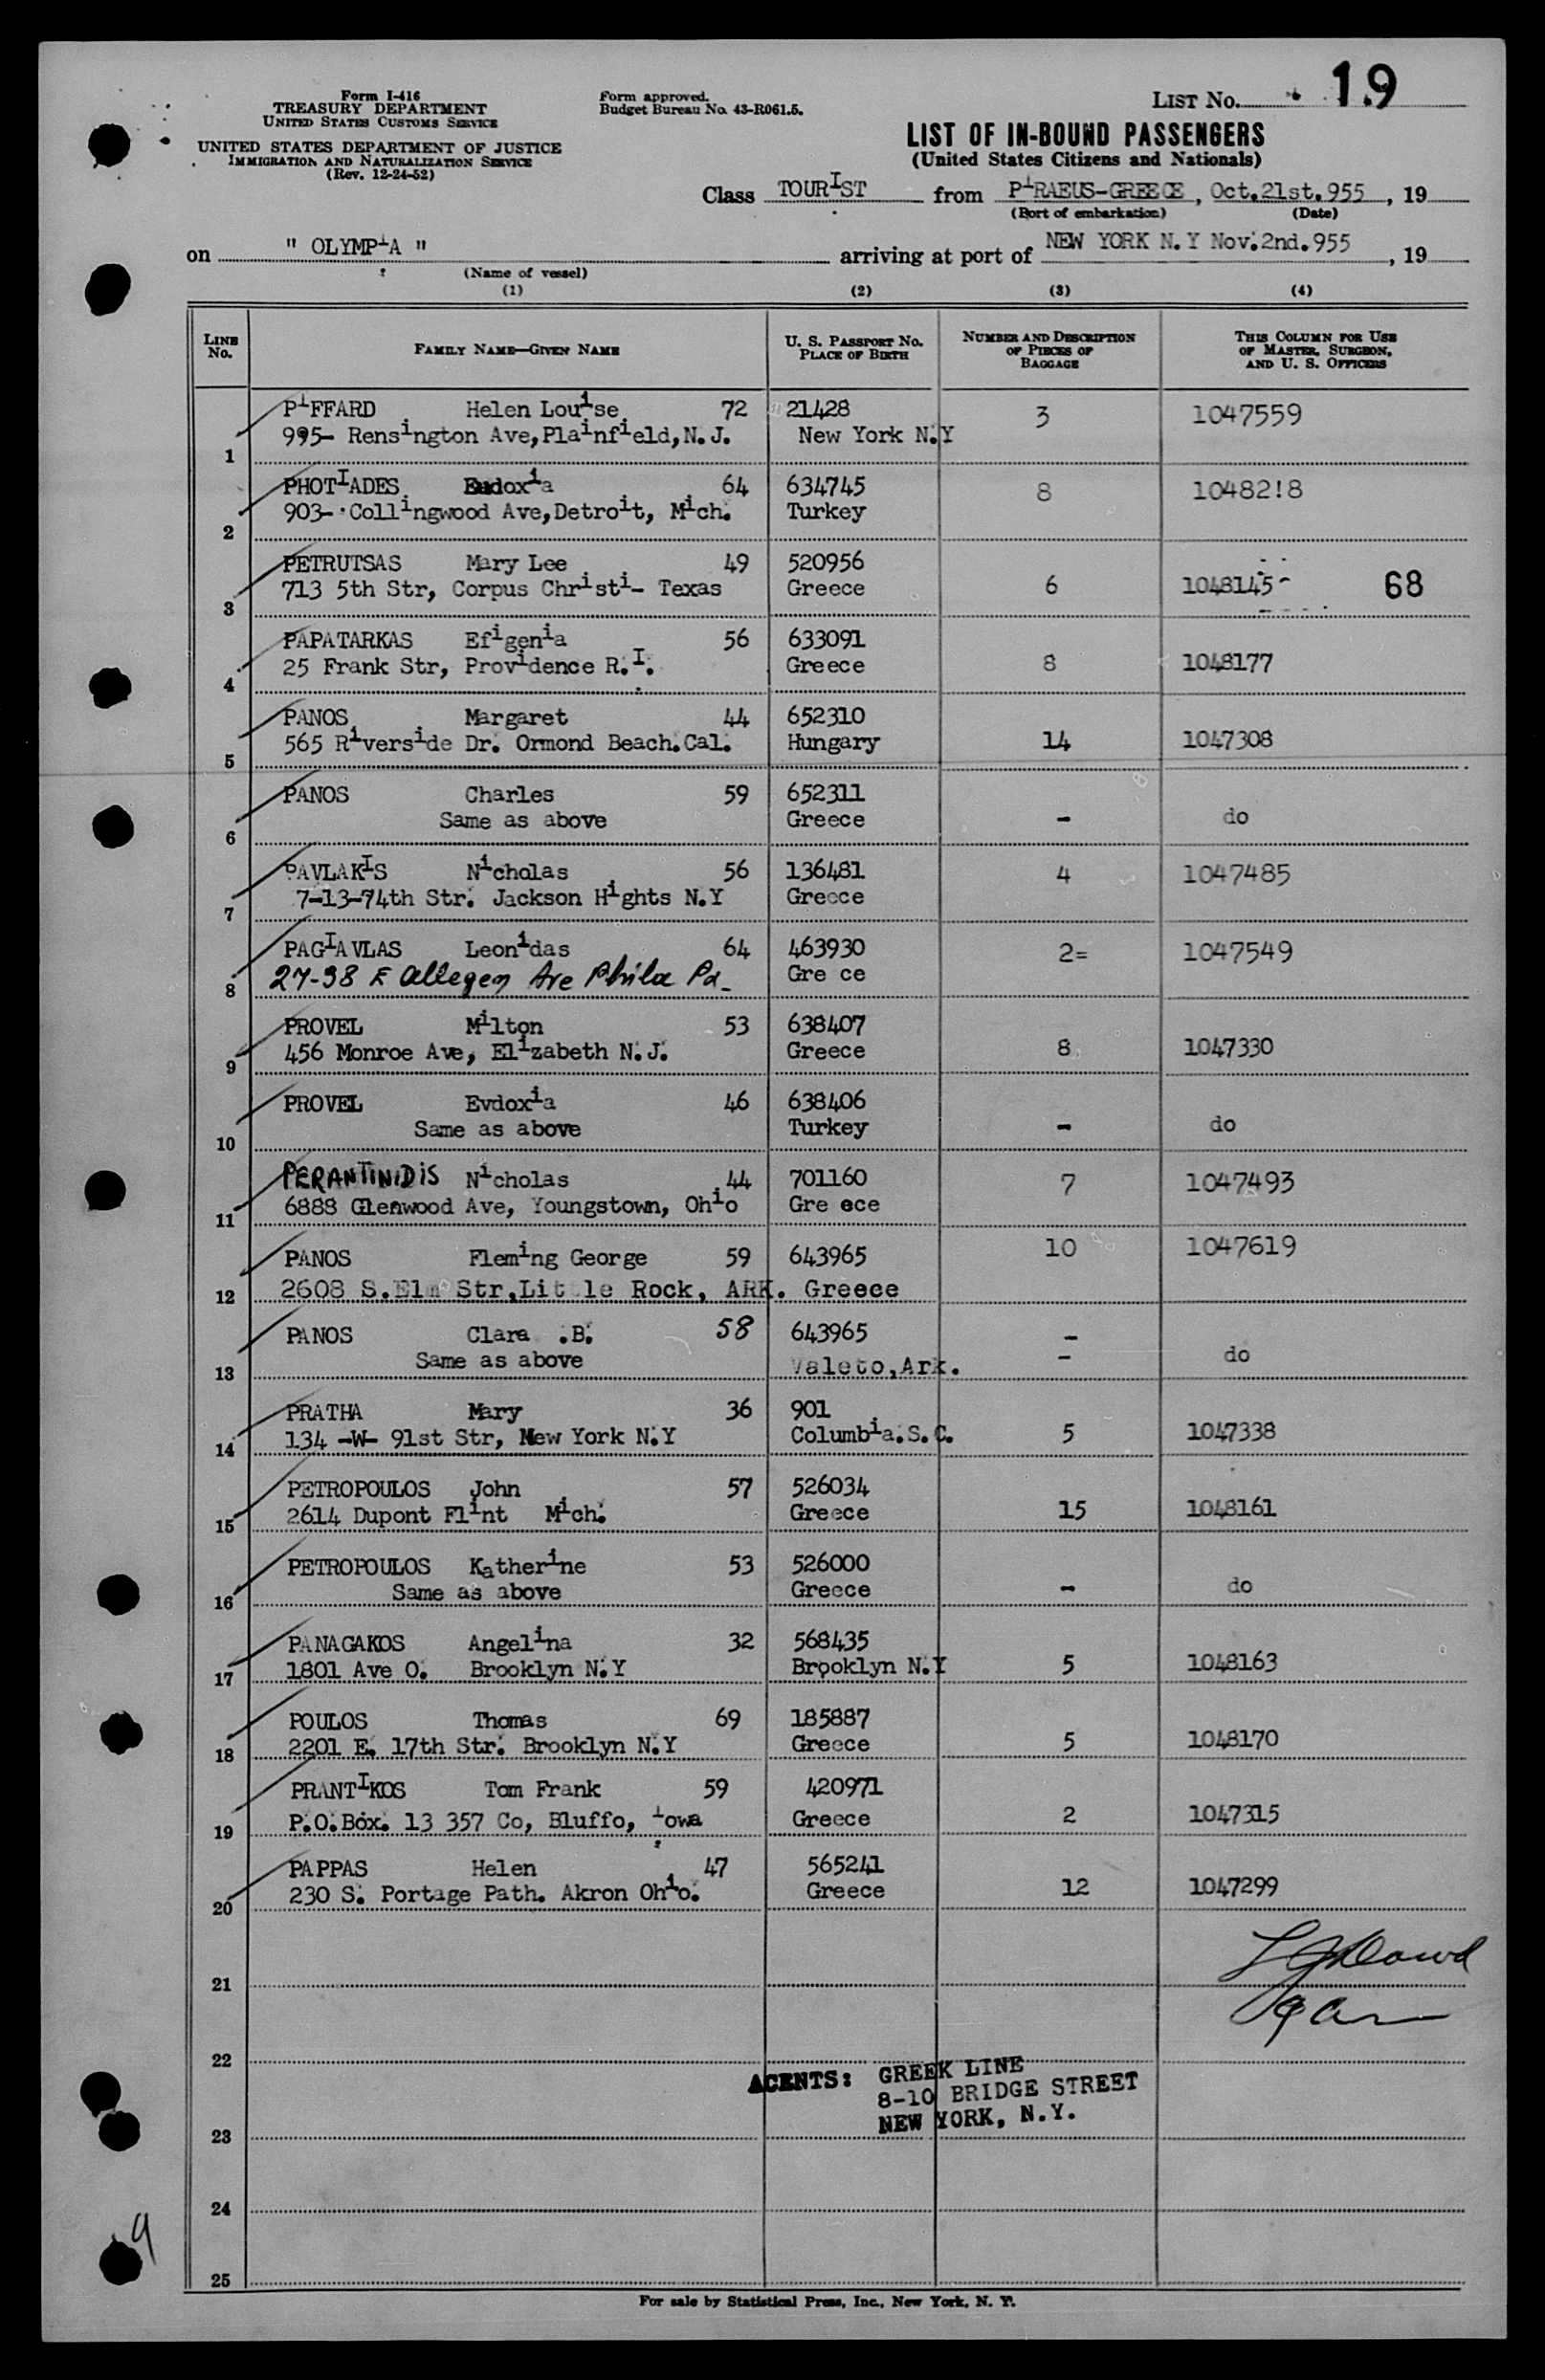 LIST No. 19
Form I-416
TREASURY DEPARTMENT
UNITED STATES CUSTOMS SERVICE
UNITED STATES DEPARTMENT OF JUSTICE
IMMIGRATION AND NATURALIZATION SERVICE
(Rev. 12-24-52)
Form approved.
Budget Bureau No. 43-R061.5.
LIST OF IN-BOUND PASSENGERS
(United States Citizens and Nationals)
Class TOURIST from PIRAEUS-GREECE, Oct.21st.955, 19
(Port of embarkation) (Date)
on " OLYMPIA " arriving at port of NEW YORK N.Y Nov.2nd.955, 19
(Name of vessel)
(1) (2) (3) (4)
LINE No. FAMILY NAME—GIVEN NAME U. S. PASSPORT No. PLACE OF BIRTH NUMBER AND DESCRIPTION OF PIECES OF BAGGAGE THIS COLUMN FOR USE OF MASTER, SURGEON, AND U. S. OFFICERS
PIFFARD Helen Louise 72 21428 3 1047559
1 995- Rensington Ave,Plainfield,N.J. New York N.Y
PHOTIADES Eudoxia 64 634745 8 1048218
2 903- Collingwood Ave,Detroit, Mich. Turkey
PETRUTSAS Mary Lee 49 520956
3 713 5th Str, Corpus Christi- Texas Greece 6 1048145- 68
PAPATARKAS Efigenia 56 633091
4 25 Frank Str, Providence R.I. Greece 8 1048177
PANOS Margaret 44 652310
5 565 Riverside Dr. Ormond Beach.Cal. Hungary 14 1047308
PANOS Charles 59 652311
6 Same as above Greece - do
PAVLAKIS Nicholas 56 136481 4 1047485
7 7-13-74th Str. Jackson Hights N.Y Greece
PAGIAVLAS Leonidas 64 463930 2= 1047549
8 27-38 E Allegen Ave Phila Pa_ Gre ce
PROVEL Milton 53 638407
9 456 Monroe Ave, Elizabeth N.J. Greece 8 1047330
PROVEL Evdoxia 46 638406
10 Same as above Turkey - do
PERANTINIDIS Nicholas 44 701160 7 1047493
11 6888 Glenwood Ave, Youngstown, Ohio Gre ece
PANOS Fleming George 59 643965 10 1047619
12 2608 S.Elm Str,Little Rock, ARK. Greece
PANOS Clara .B. 58 643965 -
13 Same as above Valeto,Ark. - do
PRATHA Mary 36 901
14 134 -W- 91st Str, New York N.Y Columbia.S.C. 5 1047338
PETROPOULOS John 57 526034
15 2614 Dupont Flint Mich. Greece 15 1048161
PETROPOULOS Katherine 53 526000
16 Same as above Greece - do
PANAGAKOS Angelina 32 568435
17 1801 Ave O. Brooklyn N.Y Brooklyn N.Y 5 1048163
POULOS Thomas 69 185887
18 2201 E. 17th Str. Brooklyn N.Y Greece 5 1048170
PRANTIKOS Tom Frank 59 420971
19 P.O.Box. 13 357 Co, Bluffo, Iowa Greece 2 1047315
PAPPAS Helen 47 565241
20 230 S. Portage Path. Akron Ohio. Greece 12 1047299
21
22
AGENTS: GREEK LINE
8-10 BRIDGE STREET
NEW YORK, N.Y.
23
24
9
25
For sale by Statistical Press, Inc., New York, N. Y.